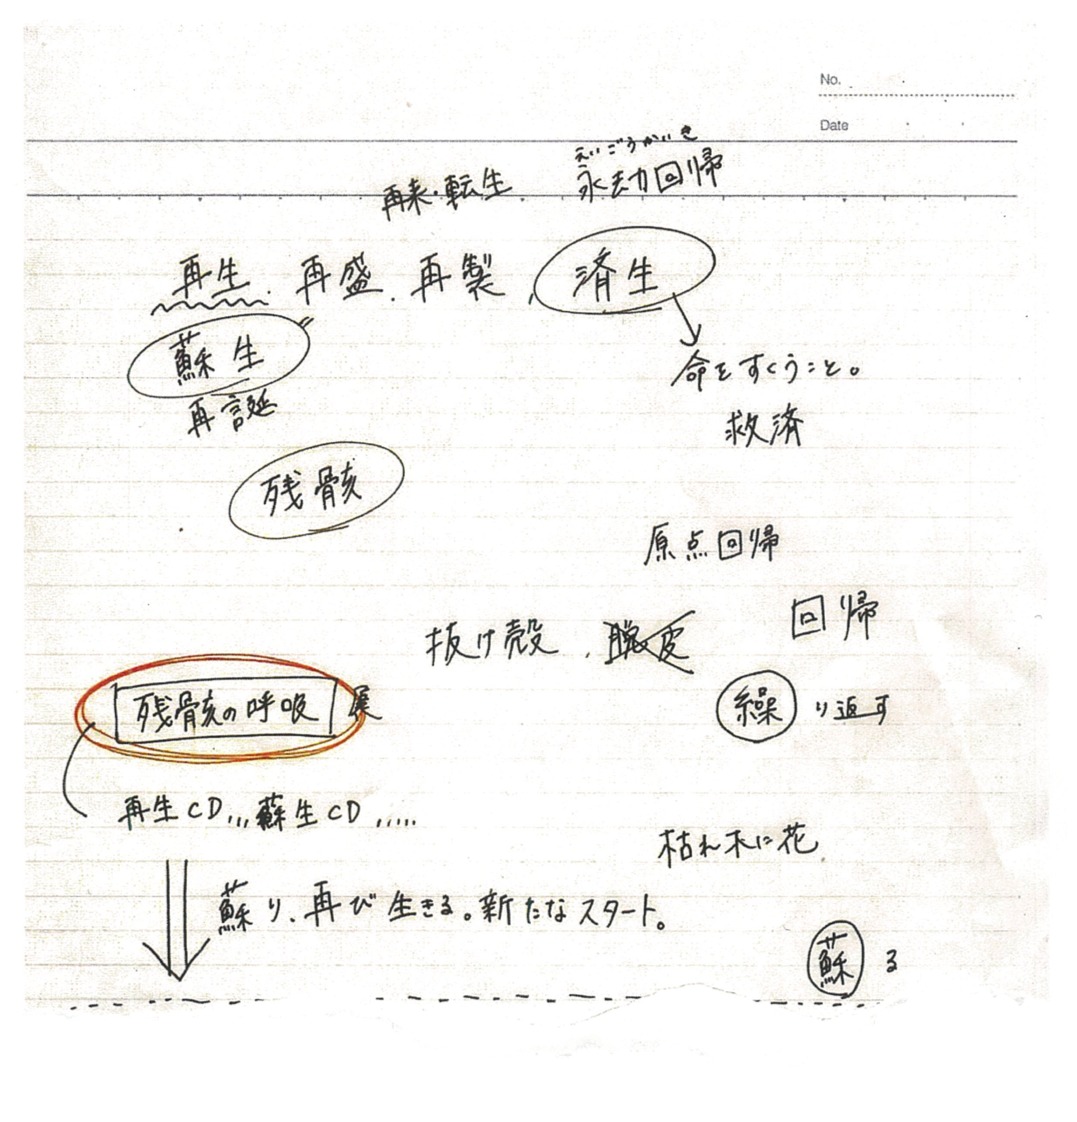 No.
Date
えいごうかいき
再来・転生 永劫回帰
再生、再盛、再製、済生
蘇生
命をすくうこと。
再誕
救済
残骸
原点回帰
回帰
抜け殻、脱皮
残骸の呼吸展
繰り返す
再生CD,,,蘇生CD,,,,,
枯れ木に花
蘇り、再び生きる。新たなスタート。
蘇る